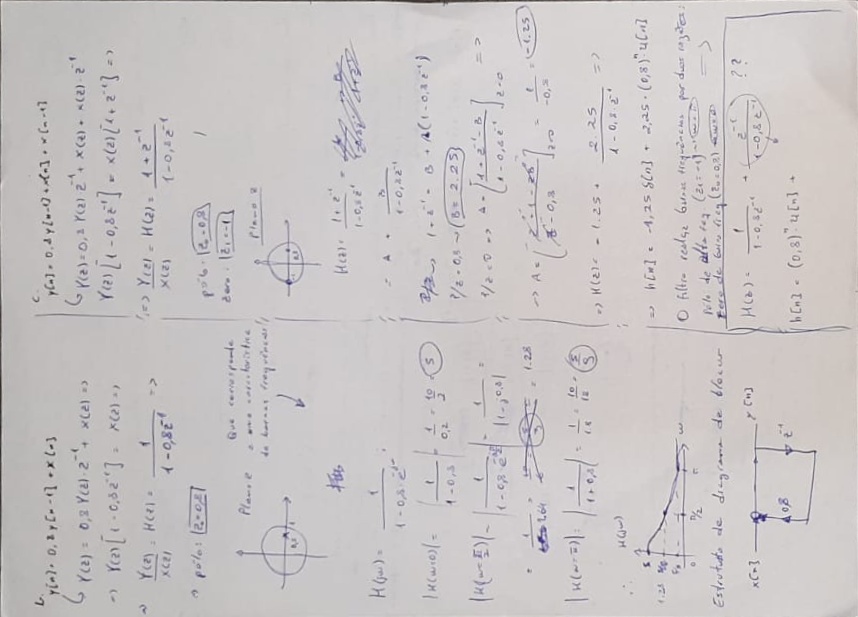 b.
y[n] = 0,8 y[n-1] + x[n]
↳ Y(z) = 0,8 Y(z) z⁻¹ + X(z) =>
=> Y(z) [1 - 0,8 z⁻¹] = X(z) =>
=> Y(z)/X(z) = H(z) = 1/(1 - 0,8 z⁻¹) =>
=> pólo: z₀ = 0,8
Plano z
Que corresponde
a uma característica
de baixas frequências!
H(jω) = 1/(1 - 0,8 e^-jω)
|H(ω=0)| = |1/(1 - 0,8)| = 1/0,2 = 10/2 = 5
|H(ω=π/2)| = |1/(1 - 0,8 e^-jπ/2)| = 1/|1 - j0,8| =
= 1.28
|H(ω=π)| = |1/(1 + 0,8)| = 1/1.8 = 10/18 = 5/9
∴ H(jω)
5
1.28
5/9
0 π/2 π ω
Estrutura de diagrama de blocos
x[n] y[n]
0,8 z⁻¹
c.
y[n] = 0,8 y[n-1] + x[n] + x[n-1]
↳ Y(z) = 0,8 Y(z) z⁻¹ + X(z) + X(z) z⁻¹
Y(z) [1 - 0,8 z⁻¹] = X(z) [1 + z⁻¹] =>
=> Y(z)/X(z) = H(z) = (1 + z⁻¹)/(1 - 0,8 z⁻¹)
pólo: z₀ = 0,8
zero: z₁ = -1
Plano z
H(z) = (1 + z⁻¹)/(1 - 0,8 z⁻¹) =
= A + B/(1 - 0,8 z⁻¹)
1 + z⁻¹ = B + A(1 - 0,8 z⁻¹)
p/ z = 0,8 -> B = 2.25
p/ z = 0 => A = [(1 + z⁻¹ - B)/(1 - 0,8 z⁻¹)] z=0 =>
-> A = z=0 = 1/-0,8 = -1.25
=> H(z) = -1.25 + 2.25/(1 - 0,8 z⁻¹) =>
=> h[n] = -1,25 δ[n] + 2,25 · (0,8)ⁿ u[n]
O filtro realiza baixas frequências por duas razões:
H(z) = 1/(1 - 0,8 z⁻¹) + z⁻¹/(1 - 0,8 z⁻¹) ??
h[n] = (0,8)ⁿ u[n] +